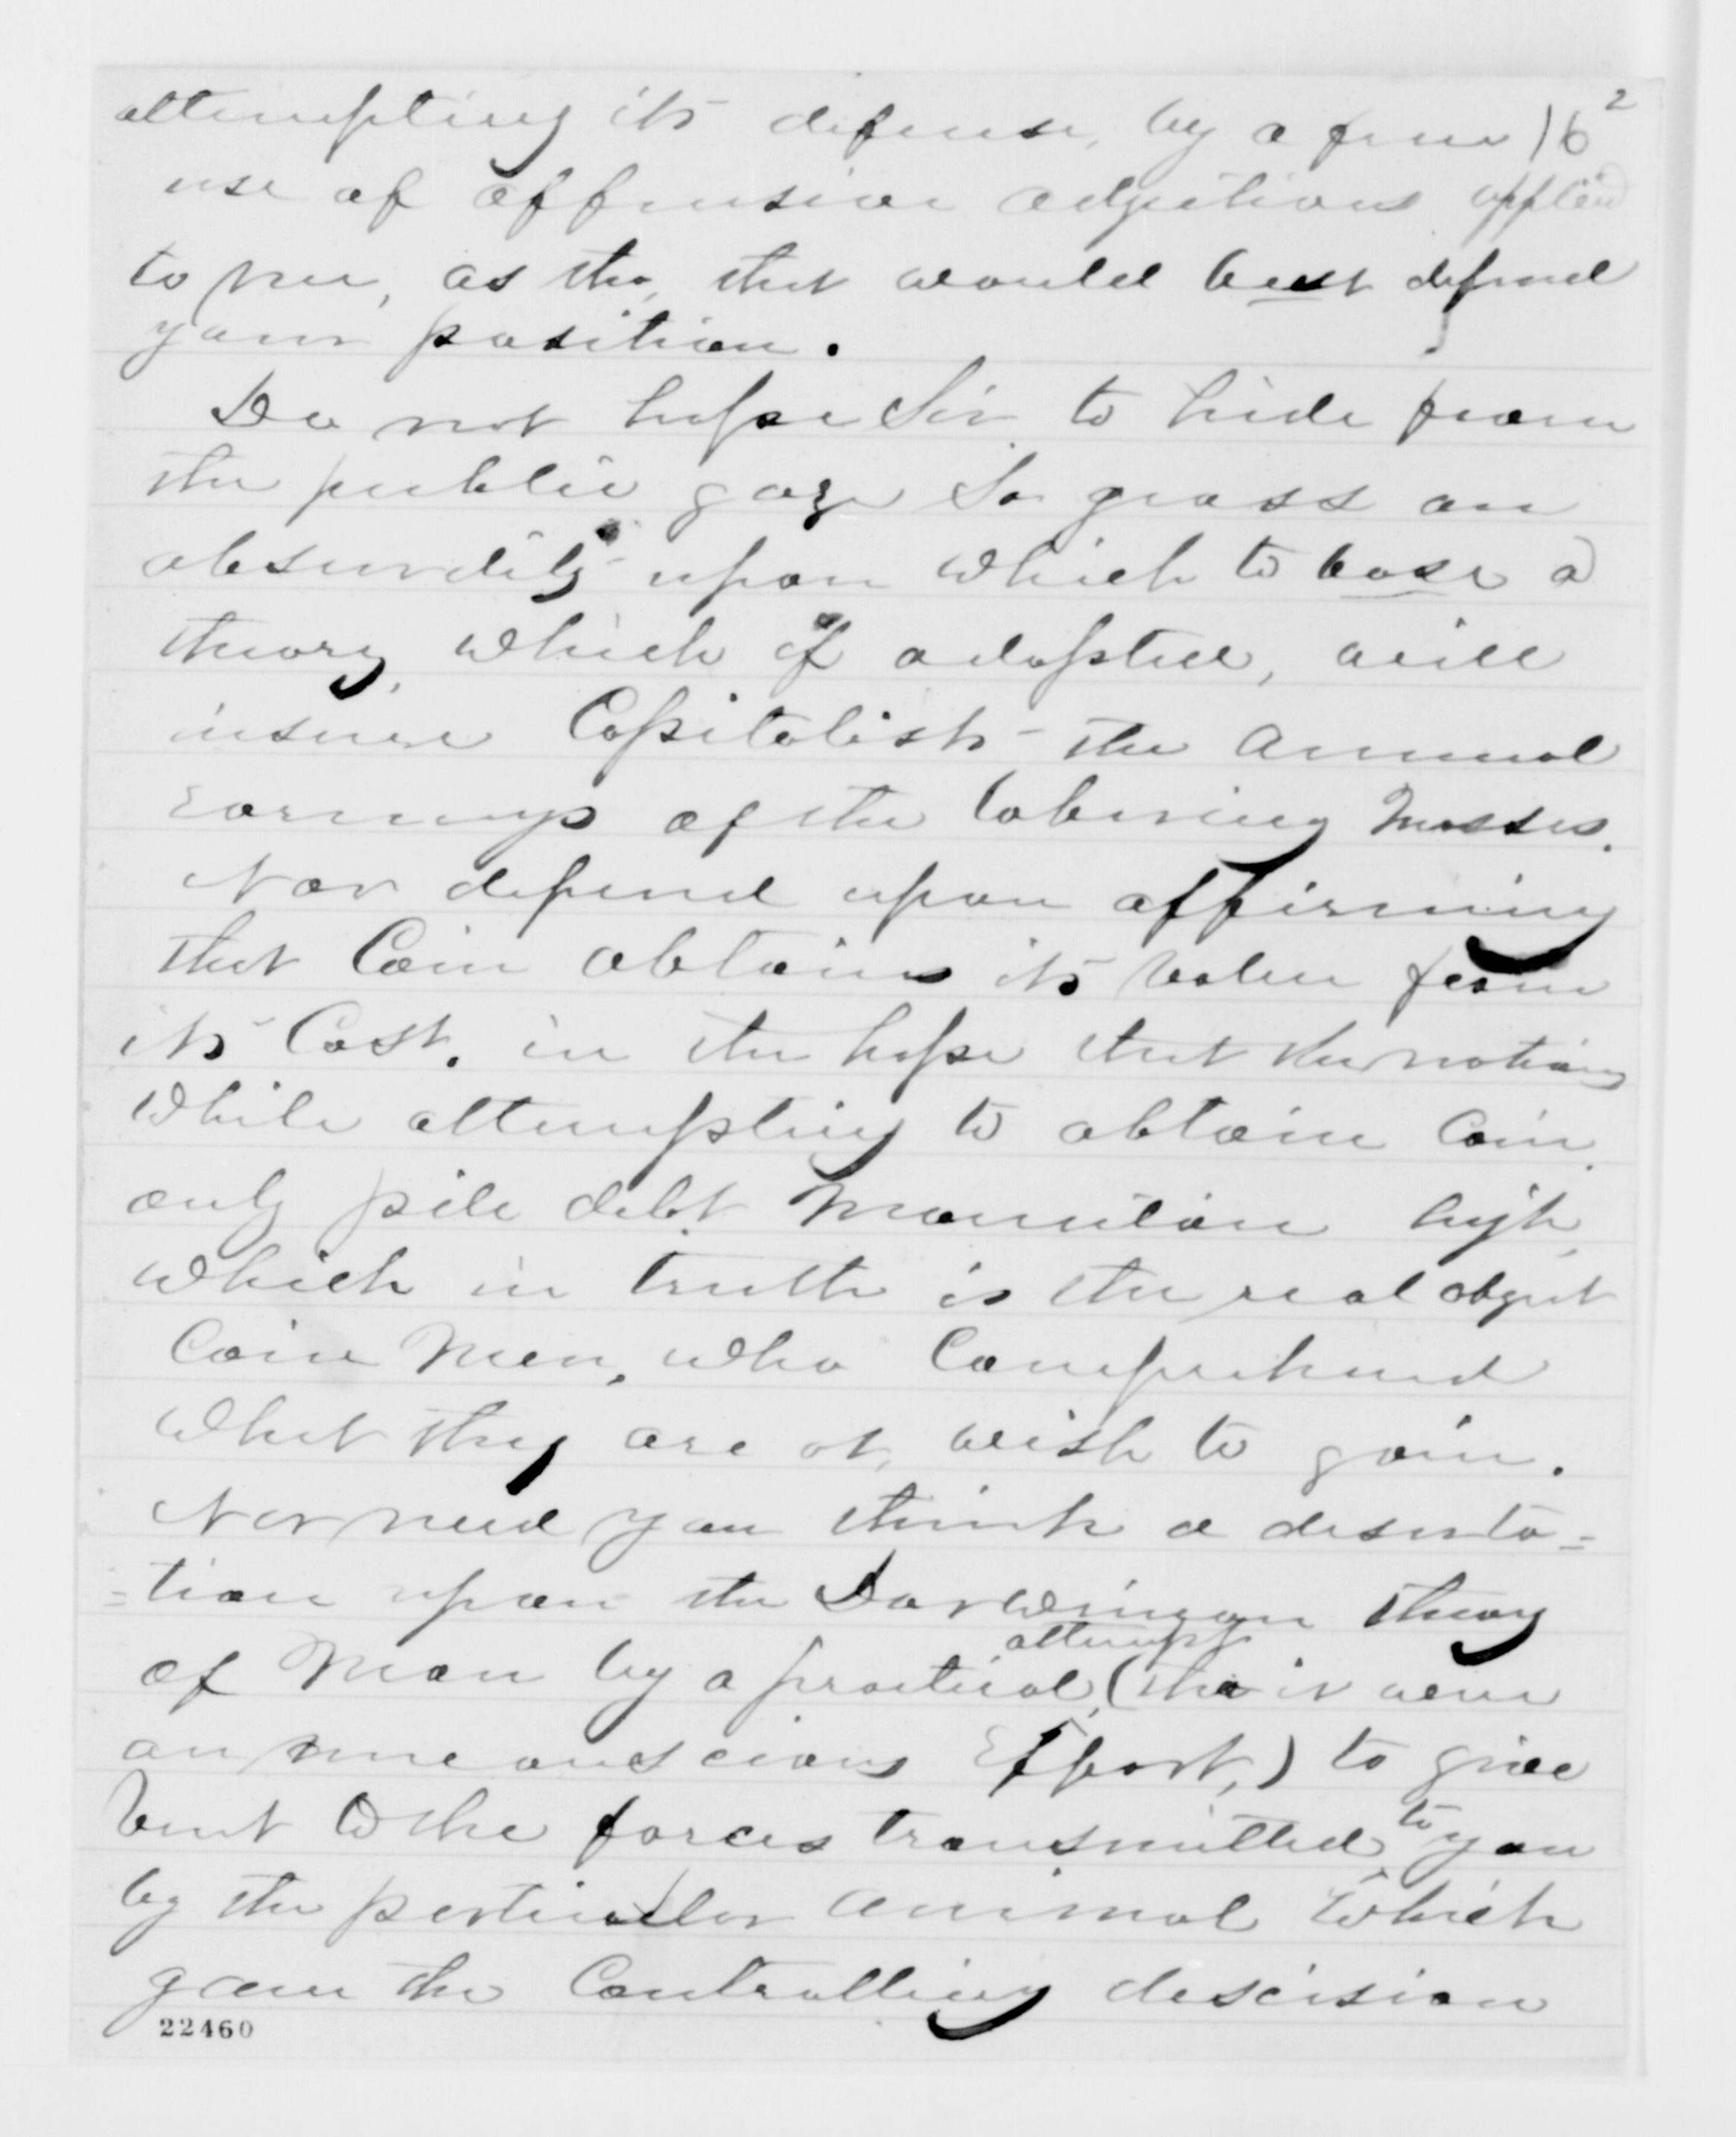 2
attempting its defense, by a free 16
use of offensive adjetives applied
to me, as tho, that would best defend
your position.
Do not hope Sir to hide from
the public gaze So gross an
absurdity upon which to base a
theory, which if adopted, will
insure Capitalists the annual
Earnings of the laboring Masses.
Nor depend upon affirming
that Coin obtains its value from
its Cost. in the hope that the nations
while attempting to obtain Coin,
only pile debt Mountain high,
which in truth is the real object
Coin Men, who Comprehend
what they are at, wish to gain.
Nor need you think a deserta=
=tion upon the Darwingan theory
attempt
of Man by a practical, (tho it were
an unconscious Effort,) to give
vent to the forces transmitted to you
by the perticular animal which
gave the Controlling descision
22460